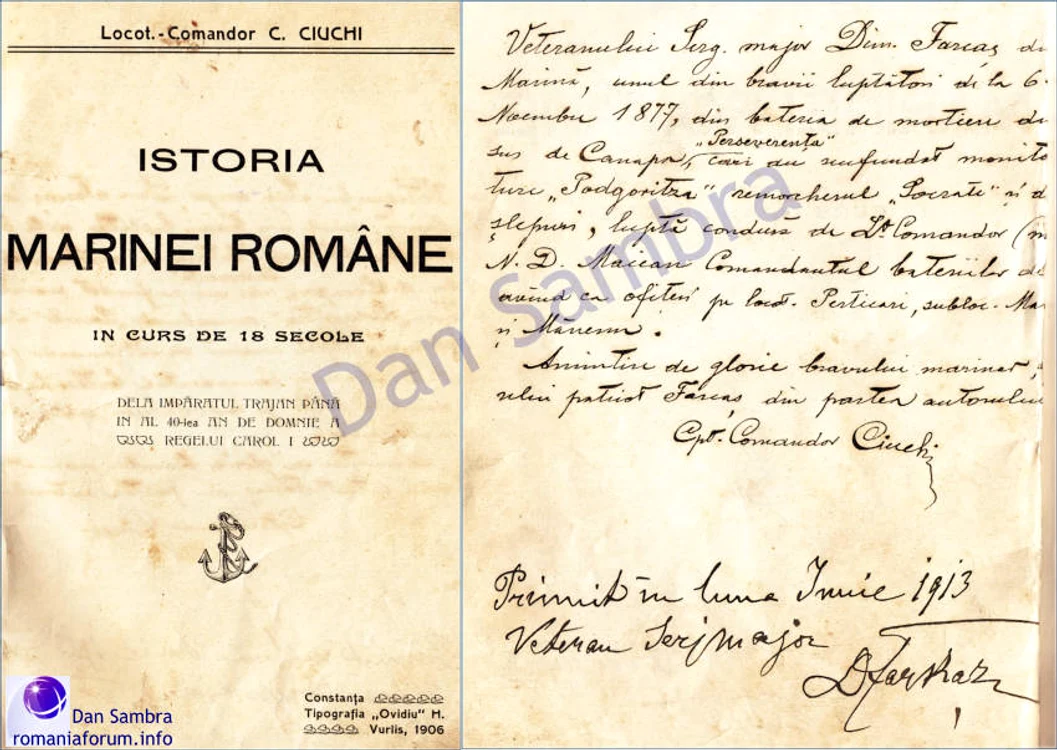 Locot.-Comandor C. CIUCHI
ISTORIA
MARINEI ROMÂNE
IN CURS DE 18 SECOLE
DELA IMPĂRATUL TRAJAN PÂNĂ
IN AL 40-lea AN DE DOMNIE A
REGELUI CAROL I
Constanța
Tipografia „Ovidiu" H.
Vurlis, 1906
Dan Sambra
romaniaforum.info
Veteranului Serg. major Dim. Farcaș de
Marină, unul din bravii luptători de la 6
Noembrie 1877, din bateria de mortiere de
„Perseverența"
sus de Canapa, cari au scufundat monito
turc „Podgoritza" remorcherul „Socrate" și d
șlepuri, luptă condusă de Lt Comandor (m
N. D. Maican Comandantul bateriilor de
având ca ofițeri pe locot. Perticari, subloc. Ma
și Mănescu.
Amintire de glorie bravului marinar,
patriot Farcaș din partea autorului
Cpt. Comandor Ciuchi
Primit în luna Iunie 1913
Veteran Serjmajor
DFarkaz
Dan Sambra